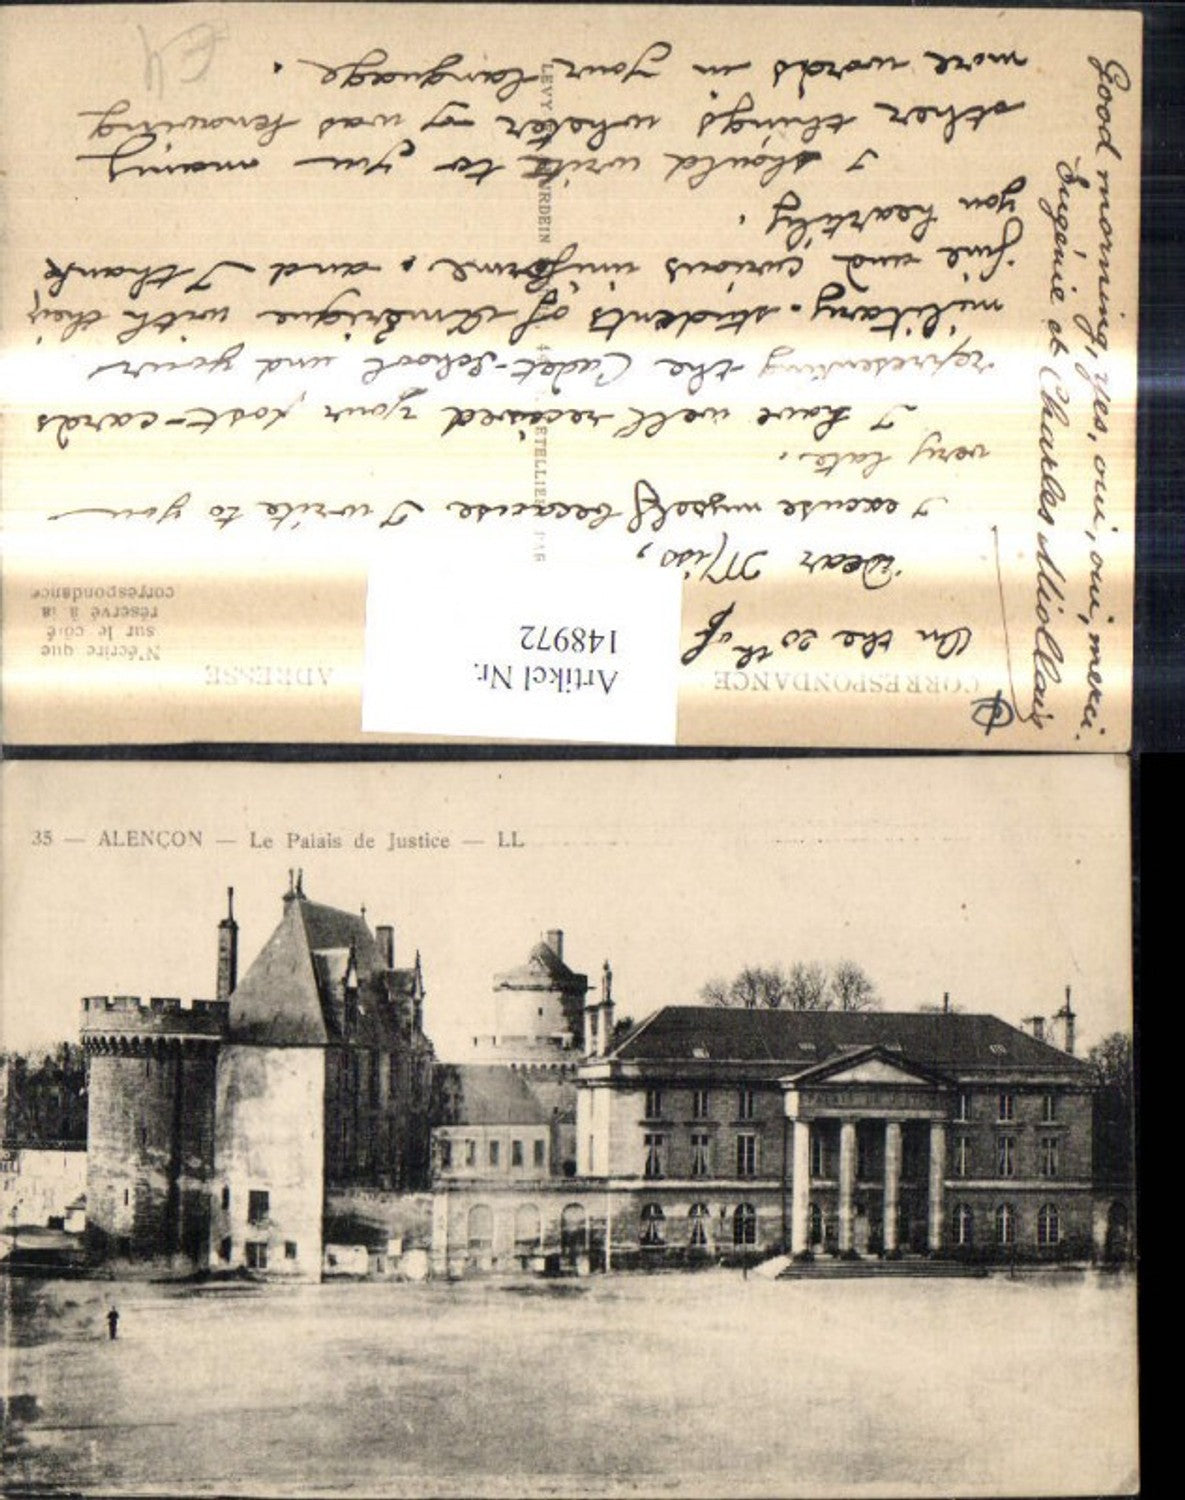 CORRESPONDANCE
ADRESSE
N'écrire que
sur le côté
réservé à la
correspondance
Artikel Nr.
148972
On the 20th of
Dear Miss,
I excuse myself because I write to you
very late.
I have well received your post-cards
representing the Cadet-School and your
military-students of Amérique with their
fine and curious uniforme, and I thank
you heartily.
I should write to you many
other things wheter I was knowing
more words in your language.
Good morning, yes, oui, oui, oui, merci.
Eugénie et Charles
LEVY
ETELLIE
35 — ALENÇON — Le Palais de Justice — LL
PALAIS DE JUSTICE